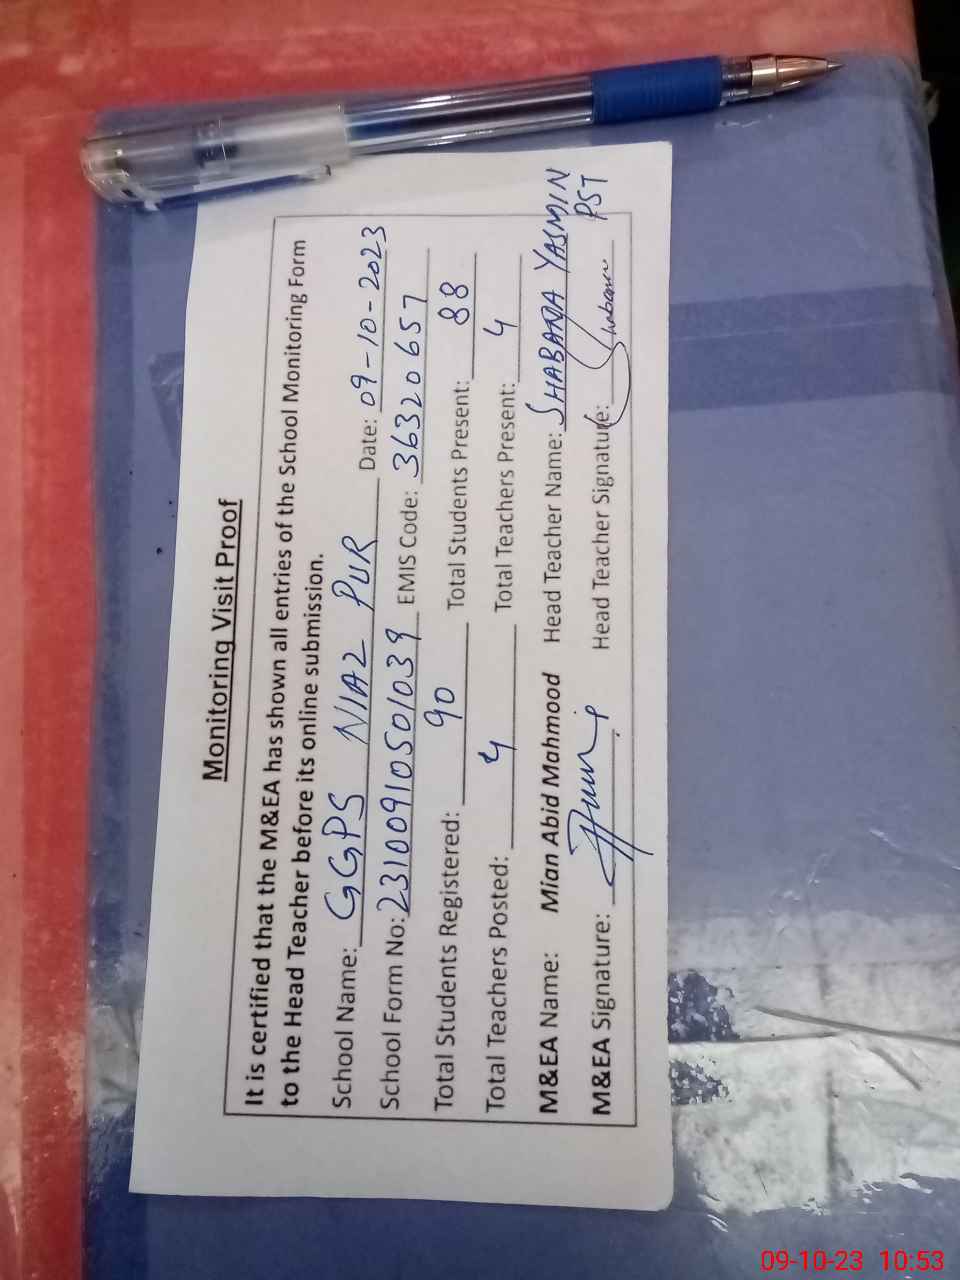 Monitoring Visit Proof
It is certified that the M&EA has shown all entries of the School Monitoring Form
to the Head Teacher before its online submission.
School Name: GGPS NIAZ PUR Date: 09-10-2023
School Form No: 2310091050 1039 EMIS Code: 36320657
Total Students Registered: 90 Total Students Present: 88
Total Teachers Posted: 4 Total Teachers Present: 4
M&EA Name: Mian Abid Mahmood Head Teacher Name: SHABANA YASMIN
PST
M&EA Signature: Head Teacher Signature: Shabana
09-10-23 10:53